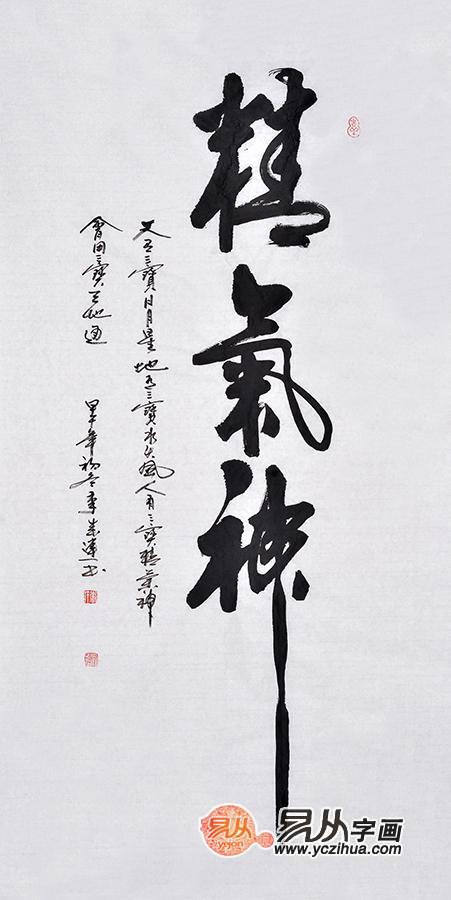 精氣神
天有三寶日月星地有三寶水火風人有三寶精氣神
會用三寶天地通
甲午年初冬李成連书
易从
易从字画
www.yczihua.com